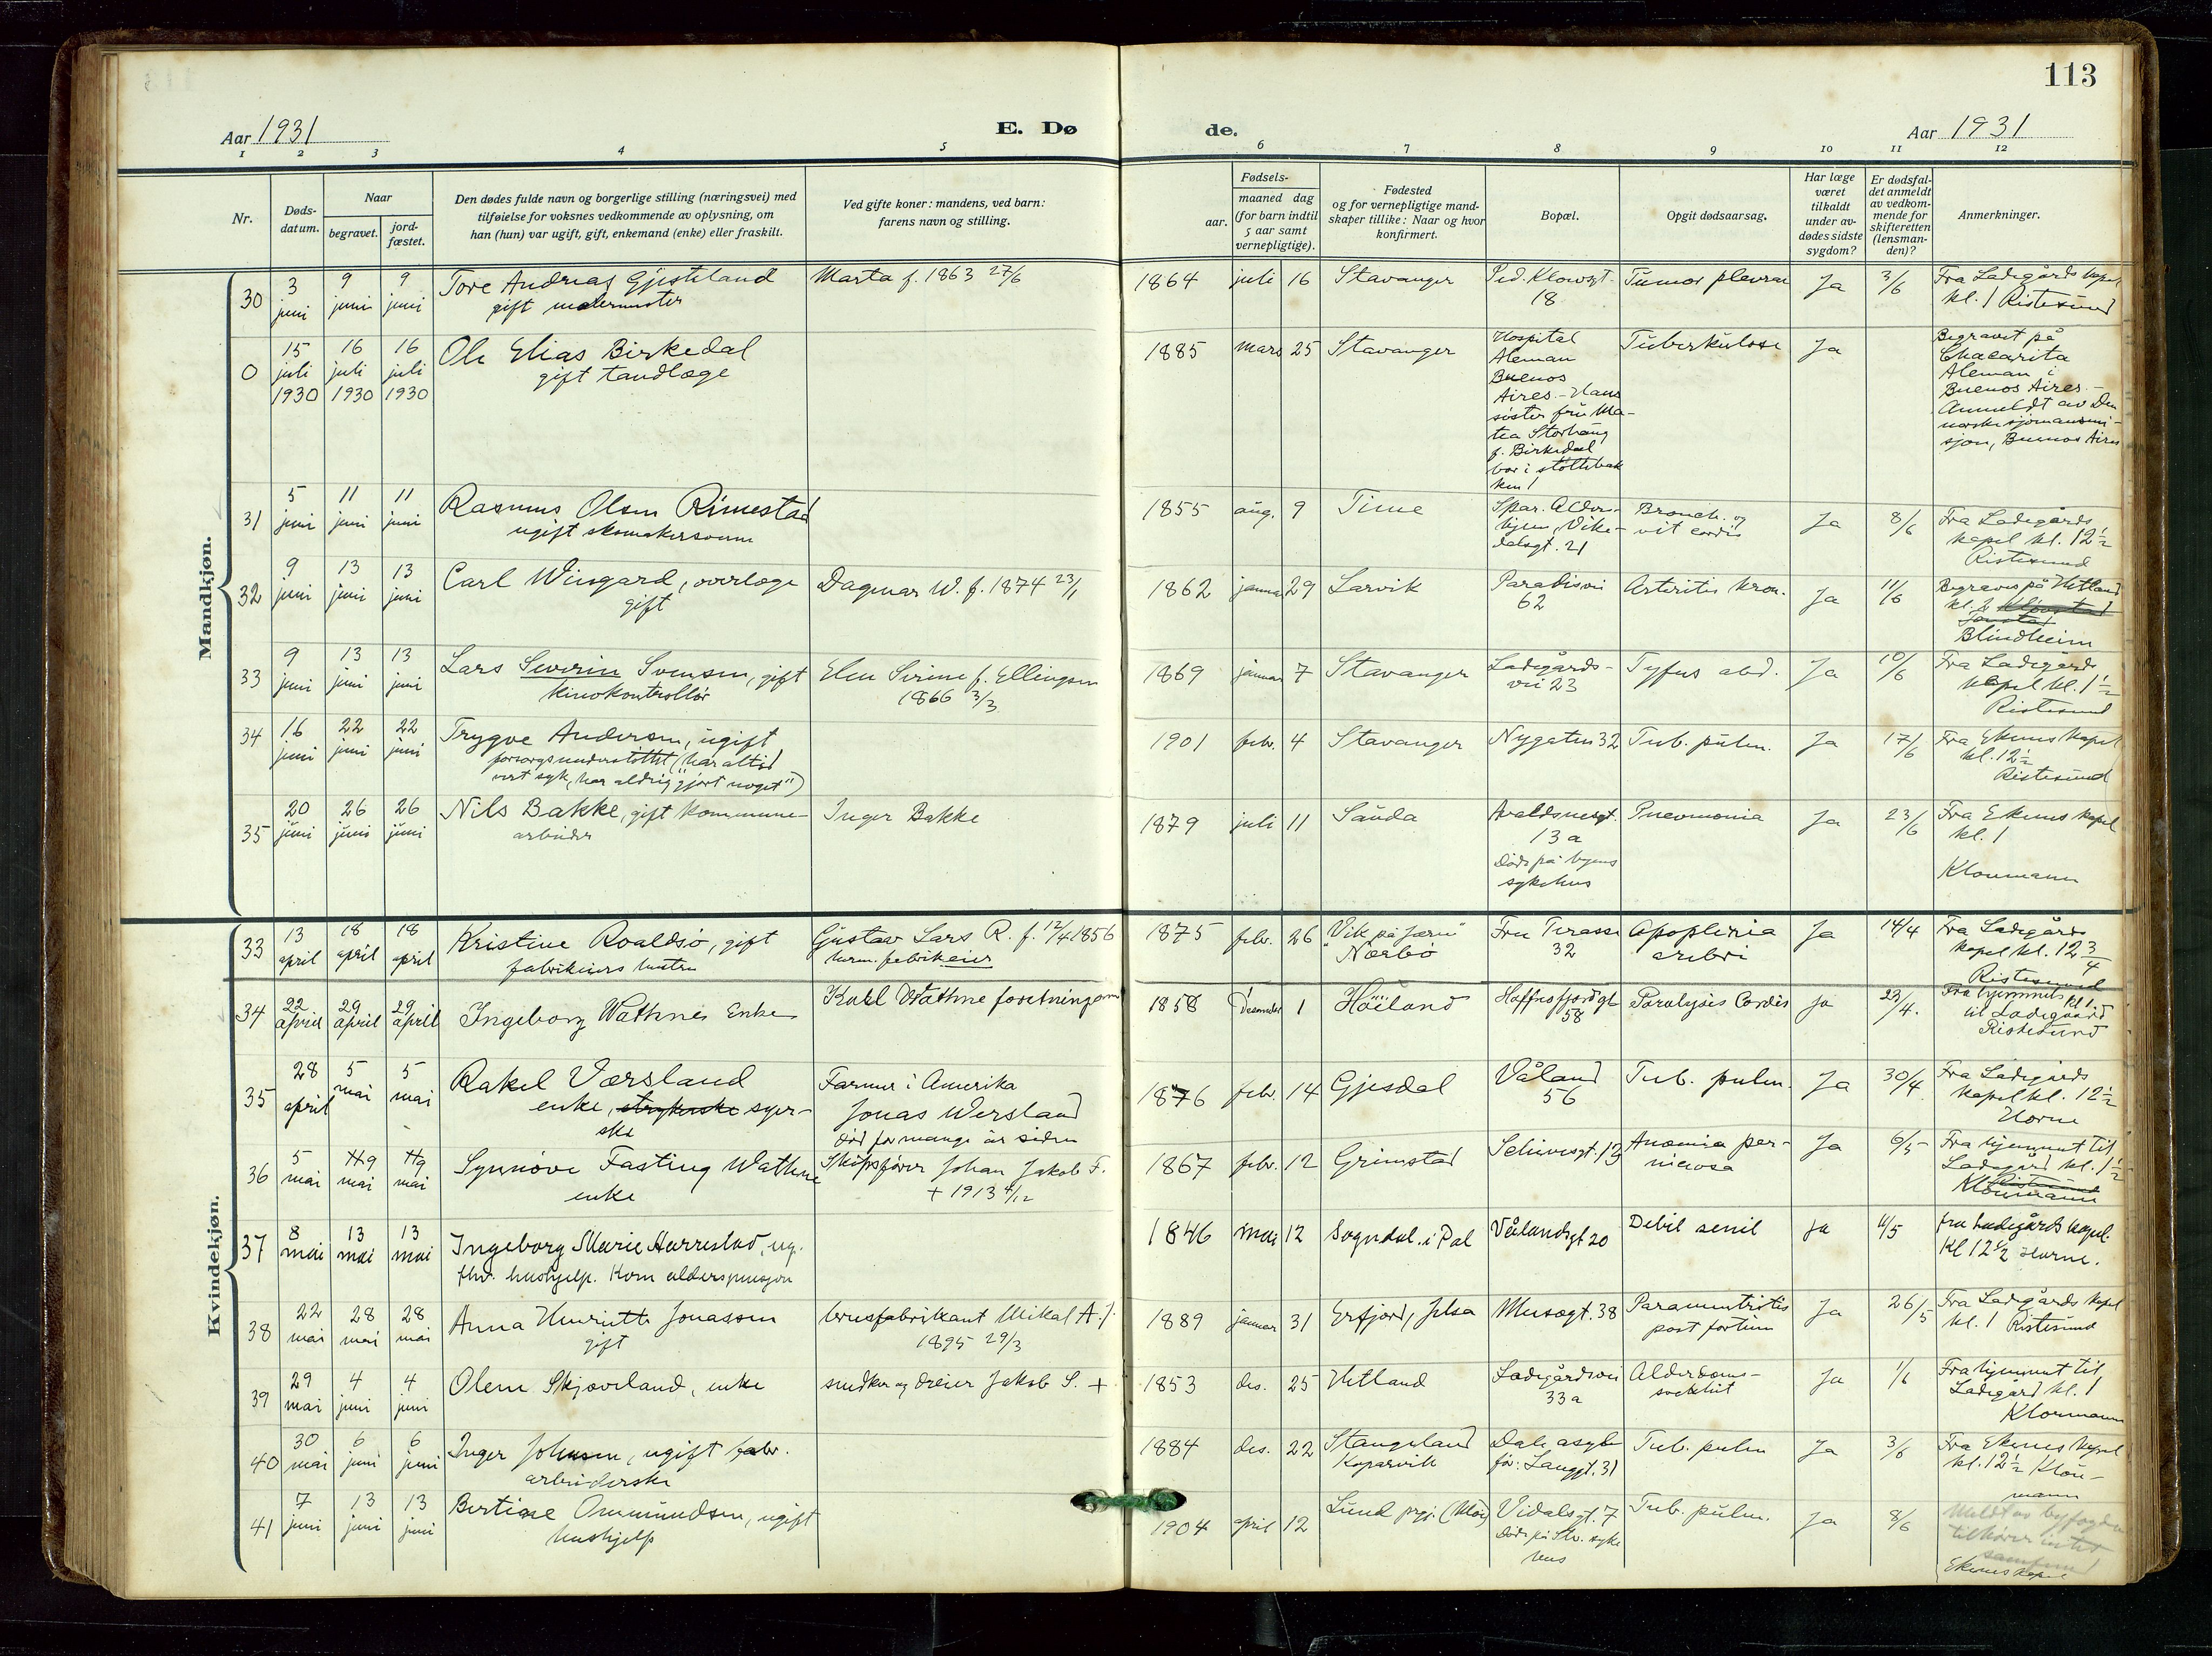 113
Aar 1931
E. Dø
de.
Aar 1931
1 2 3 4 5 6 7 8 9 10 11 12
Nr.
Døds-
datum.
Naar
begravet.
jord-
fæstet.
Den dødes fulde navn og borgerlige stilling (næringsvei) med
tilføielse for voksnes vedkommende av oplysning, om
han (hun) var ugift, gift, enkemand (enke) eller fraskilt.
Ved gifte koner: mandens, ved barn:
farens navn og stilling.
Fødsels-
aar.
maaned dag
(for barn indtil
5 aar samt
vernepligtige).
Fødested
og for vernepligtige mand-
skaper tillike: Naar og hvor
konfirmert.
Bopæl.
Opgit dødsaarsag.
Har læge
været
tilkaldt
under av-
dødes sidste
sygdom?
Er dødsfal-
det anmeldt
av vedkom-
mende for
skifteretten
(lensman-
den)?
Anmerkninger.
Mandkjøn.
30
3 juni
9 juni
9 juni
Tore Andreas Gjesteland
gift malermester
Marta f. 1863 27/6
1864 juli 16
Stavanger
Ped. Klowgt.
18
Tumor pleurae
Ja
3/6
Fra Ladegårds kapel
kl. 1 Ristesund
0
15 juli 1930
16 juli 1930
16 juli 1930
Ole Elias Birkedal
gift tandlæge
1885 mars 25
Stavanger
Hospital
Aleman
Buenos
Aires. - Hans
søster fru Ma-
tea Storhaug
f. Birkedal
bor i støttebak
ken 1
Tuberkulose
Ja
Begravet på
Chacarita
Aleman i
Buenos Aires. -
Anmeldt av Den
norske sjømansmi-
sjon, Buenos Aires
31
5 juni
11 juni
11 juni
Rasmus Olsen Rimestad
ugift skomakersvenn
1855 aug. 9
Time
Spar. Alders-
hjem, Vike-
dalsgt. 21
Bronch. og
vit cordis
Ja
8/6
Fra Ladegårds
kapel kl. 12 1/2
Ristesund
32
9 juni
13 juni
13 juni
Carl Wingard, overlæge
gift
Dagmar W. f. 1874 23/1
1862 januar 29
Larvik
Paradisvei
62
Arteritis kron.
Ja
11/6
Begraves på Hetland
kl. 2
Blindheim
33
9 juni
13 juni
13 juni
Lars Severin Svensen, gift
kinokontrollør
Elen Serine f. Ellingsen
1866 3/3
1869 januar 7
Stavanger
Ladegårds-
vei 23
Tyfus abd.
Ja
10/6
Fra Ladegårds
kapel kl. 1 1/2
Ristesund
34
16 juni
22 juni
22 juni
Trygve Andersen, ugift
forsorgsunderstøttet (har altid
vært syk, har aldrig "gjort noget")
1901 febr. 4
Stavanger
Nygaten 32
Tub. pulm.
Ja
17/6
Fra Ekenes kapel
kl. 12 1/2
Ristesund
35
20 juni
26 juni
26 juni
Nils Bakke, gift kommune-
arbeider
Inger Bakke
1879 juli 11
Sauda
Avaldsnesgt.
13 a
Døde på byens
sykehus
Pneumonia
Ja
23/6
Fra Ekenes kapel
kl. 1
Kloumann
Kvindekjøn.
33
13 april
18 april
18 april
Kristine Roaldsø, gift
fabrikeiers hustru
Gustav Lars R. f. 12/4 1856
herm. fabrikeier
1875 febr. 26
"Vik på Jæren"
Nærbø
Fru Terasse
32
Apoplexia
cerebri
Ja
14/4
Fra Ladegårds
kapel kl. 12 3/4
Ristesund
34
22 april
29 april
29 april
Ingeborg Wathnes Enke
Karl Wathne foretningsm
1858 Desember 1
Høiland
Haffrsfjordgt
58
Paralysis Cordis
Ja
23/4.
Fra hjemmet kl 1.
til Ladegaard
Ristesund
35
28 april
5 mai
5 mai
Rakel Værsland
enke, strykerske syer-
ske
Farmer i Amerika
Jonas Wersland
død for mange år siden
1876 febr. 14
Gjesdal
Våland
56
Tub. pulm.
Ja
30/4
Fra Ladegårds
kapel kl. 12 1/2
Horne
36
5 mai
9 mai
9 mai
Synnøve Fasting Wathne
enke
Skipsfører Johan Jakob F.
+ 1913 4/12
1867 febr. 12
Grimstad
Schivesgt. 13
Anæmia per-
niciosa
Ja
6/5
Fra hjemmet til
Ladegård kl. 1 1/2
Ristesund
Kloumann
37
8 mai
13 mai
13 mai
Ingeborg Marie Harrestad, ug.
fhv. hushjelp. Kom alderspensjon
1846 mai 12
Sogndal i Dal
Vålandsgt 20
Debil senil
ja
11/5
fra Ladegårds kapel.
Kl 12 1/2 Horne.
38
22 mai
28 mai
28 mai
Anna Henriette Jonassen
gift
brusfabrikant Mikal A. J.
1895 29/3
1889 januar 31
Erfjord, Jelsa
Musegt. 38
Parametritis
post partum
Ja
26/5
Fra Ladegårds kapel
kl. 1 Ristesund
39
29 mai
4 juni
4 juni
Olene Skjæveland, enke
snedker og dreier Jakob S. +
1853 des. 25
Hetland
Ladegårdsvei
33a
Alderdoms-
svakhet
Ja
1/6
Fra hjemmet til
Ladegård kl. 1
Kloumann
40
30 mai
6 juni
6 juni
Inger Johnsen, ugift fabr.
arbeiderske
1884 des. 22
Stangeland
Kopervik
Dale asyl
før: Langgt. 31
Tub. pulm
Ja
3/6
Fra Ekenes kapel
kl. 12 1/2 Klou-
mann
41
7 juni
13 juni
13 juni
Bertine Ommundsen, ugift
hushjelp
1904 april 12
Lund prgj. (Moi)
Vidalsgt. 7
Døde på Stv. syke
hus
Tub. pulm.
Ja
8/6
Meldt av byfogden
tilhører intet
samfund
Ekenes kapel